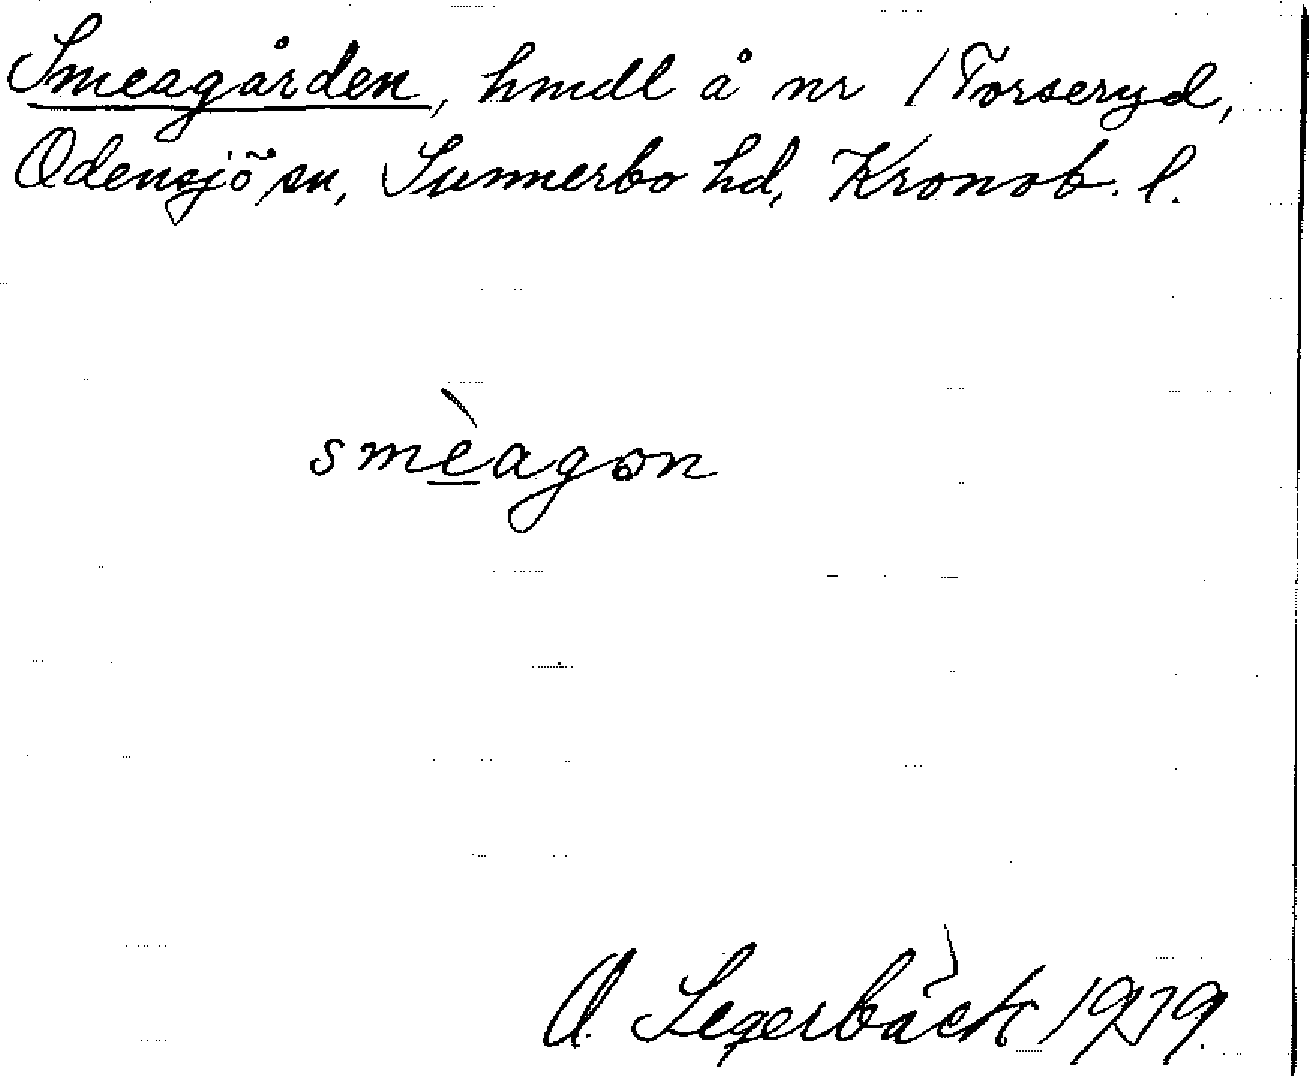 Smeagården, hmdl å nr 1 Torseryd,
Odensjö sn, Sunnerbo hd, Kronob. l.
smèagon
O. Segerbäck 1979.